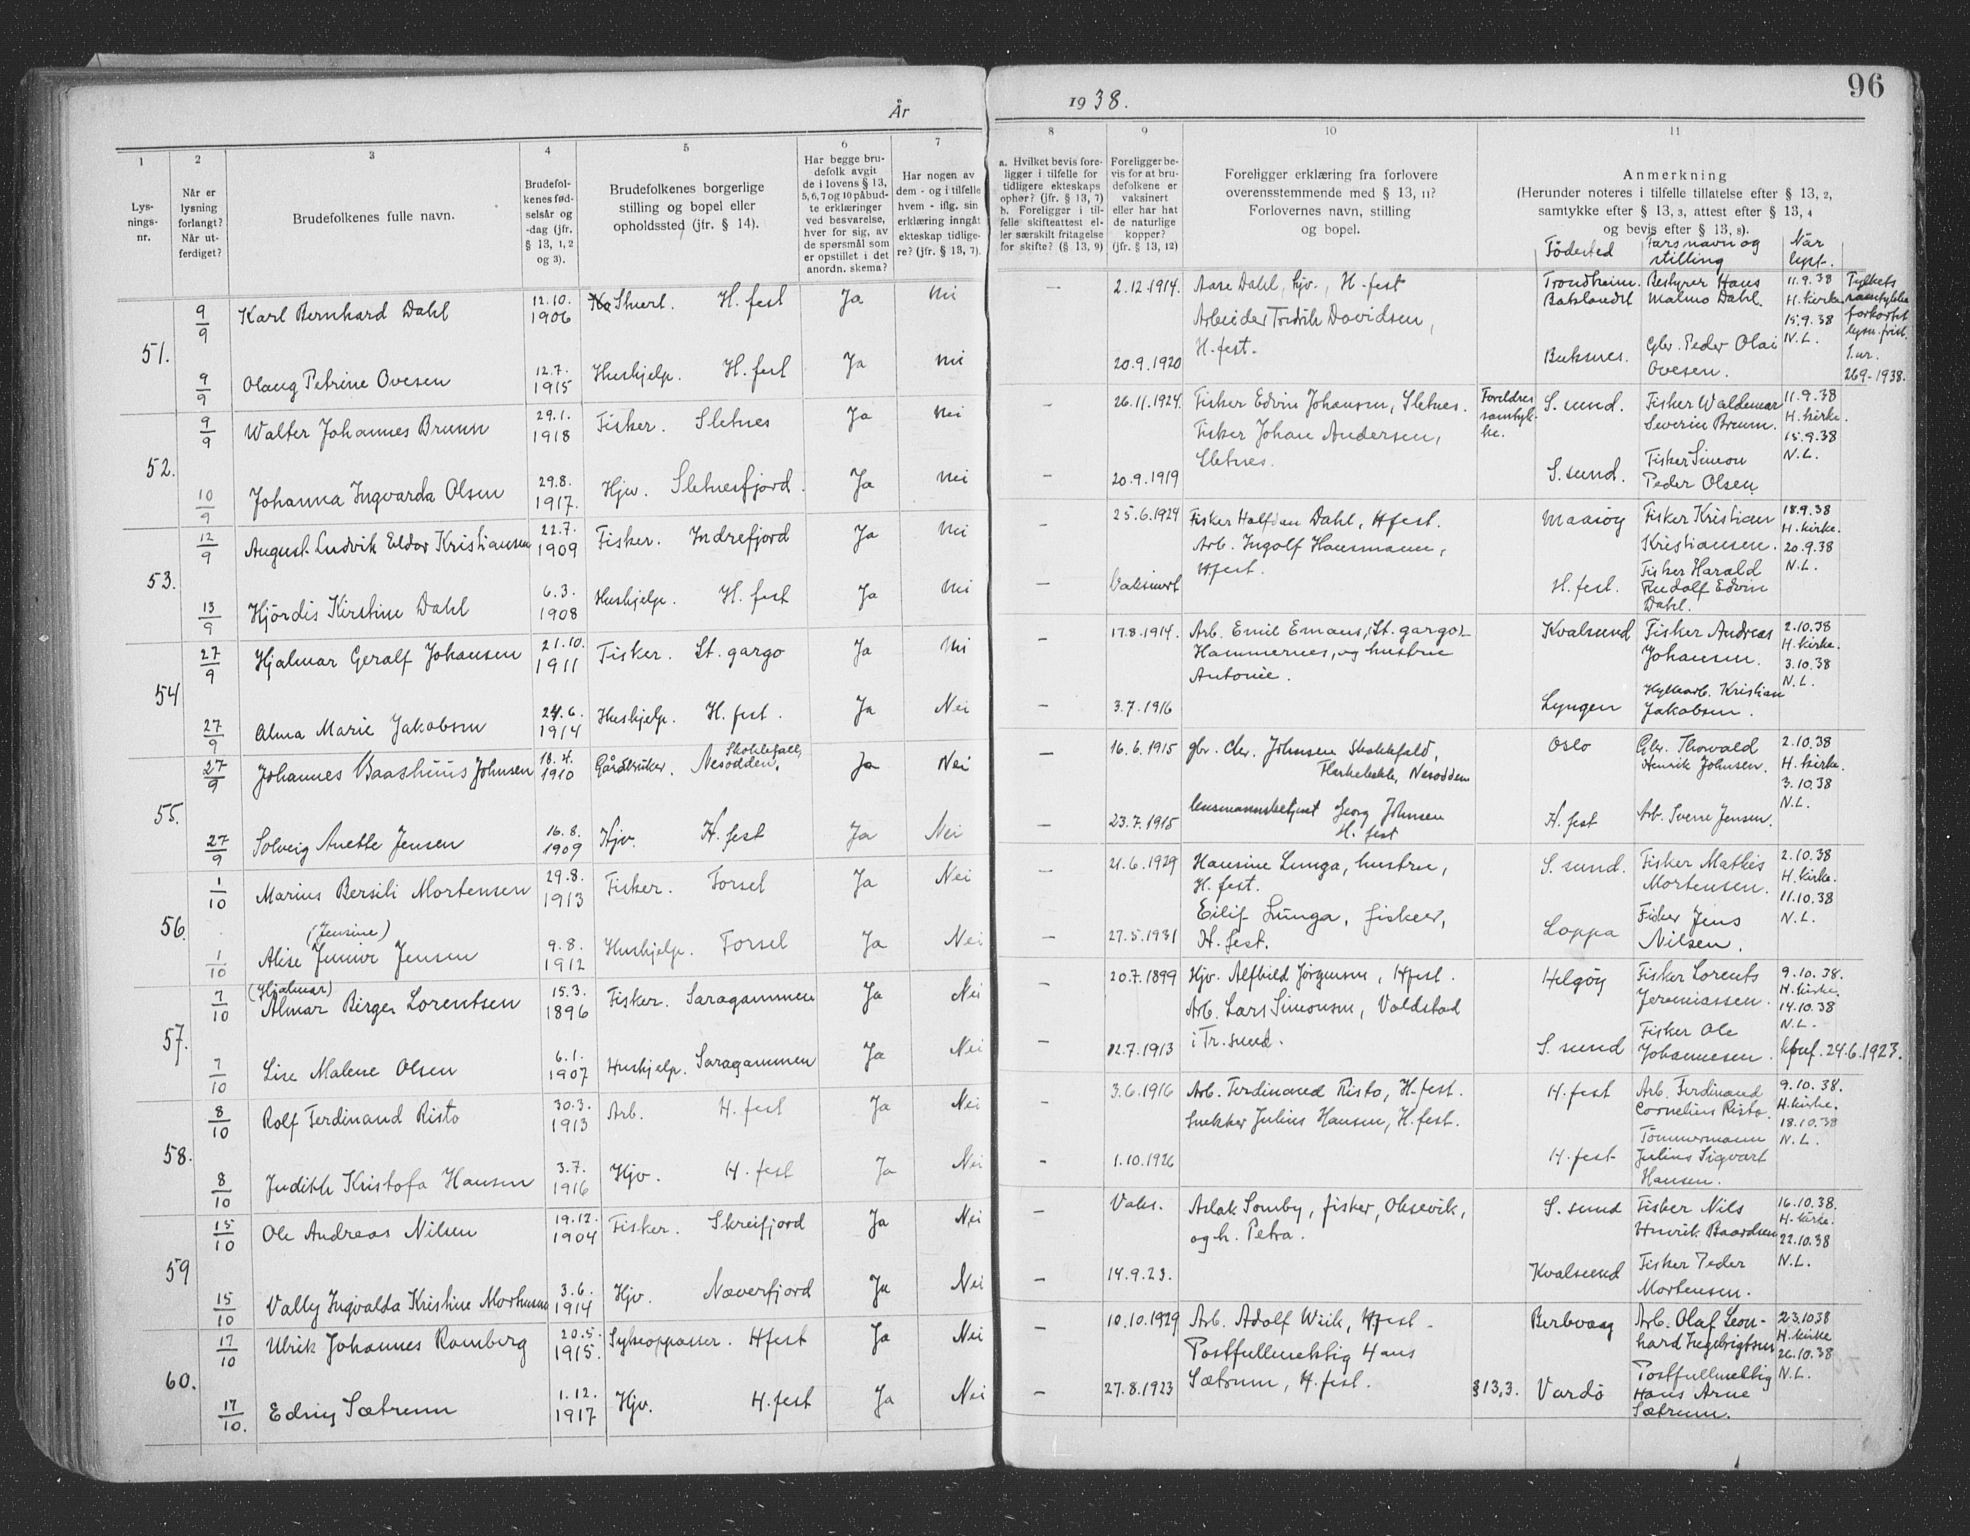 96
År 1938.
1 2 3 4 5 6 7 8 9 10 11
Lys-
nings-
nr.
Når er
lysning
forlangt?
Når ut-
ferdiget?
Brudefolkenes fulle navn.
Brudefol-
kenes fød-
selsår og
-dag (jfr.
§ 13, 1, 2
og 3).
Brudefolkenes borgerlige
stilling og bopel eller
opholdssted (jfr. § 14).
Har begge bru-
defolk avgit
de i lovens § 13,
5, 6, 7 og 10 påbud-
te erklæringer
ved besvarelse,
hver for sig, av
de spørsmål som
er opstillet i det
anordn. skema?
Har nogen av
dem - og i tilfelle
hvem - iflg. sin
erklæring inngått
ekteskap tidlige-
re? (jfr. § 13, 7).
a. Hvilket bevis fore-
ligger i tilfelle for
tidligere ekteskaps
ophør? (jfr. § 13, 7)
b. Foreligger i til-
felle skifteattest el-
ler særskilt fritagelse
for skifte? (§ 13, 9)
Foreligger be-
vis for at bru-
defolkene er
vaksinert
eller har hat
de naturlige
kopper?
(jfr. § 13, 12)
Foreligger erklæring fra forlovere
overensstemmende med § 13, 11?
Forlovernes navn, stilling
og bopel.
Anmerkning
(Herunder noteres i tilfelle tillatelse efter § 13, 2,
samtykke efter § 13, 3, attest efter § 13, 4
og bevis efter § 13, 8).
Fødested
Farsnavn og
stilling
Når
lyst.
51.
9/9 Karl Bernhard Dahl 12.10. 1906 Skuerl. H. fest Ja Nei 2.12.1914. Aase Dahl, hjv., H. fest
Arbeider Fredrik Davidsen,
H. fest.
Trondheim. Batslandet Bestyrer Hans
Malmo Dahl.
11.9.38
H. kirke.
15.9.38
N.L.
Fylkets
samtykke
forkortet
lysn. frist
J.nr.
269-1938.
9/9 Olaug Petrine Ovesen 12.7. 1915 Hushjelp. H. fest Ja Nei 20.9.1920 Buksnes. Gbr. Peder Olai
Ovesen.
52.
9/9 Walter Johannes Bruun 29.1. 1918 Fisker. Sletnes Ja Nei - 26.11.1924. Fisker Edvin Johansen, Sletnes.
Fisker Johan Andersen,
Sletnes.
Foreldres
samtyk-
ke.
S. sund. Fisker Waldemar
Severin Bruun.
11.9.38
H. kirke.
15.9.38
N.L.
10/9 Johanna Ingvarda Olsen 29.8. 1917. Hjv. Sletnesfjord. Ja Nei - 20.9.1919 S. sund. Fisker Simon
Peder Olsen.
53.
12/9 August Ludvik Eldor Kristiansen 22.7. 1909 Fisker. Indrefjord Ja Nei - 25.6.1924 Fisker Halfdan Dahl, Hfest.
Arb. Ingolf Hansmann,
Hfest.
Maasøy Fisker Kristian
Kristiansen.
18.9.38
H. kirke.
20.9.38
N.L.
13/9 Hjördis Kirstine Dahl 6.3. 1908 Hushjelp. H. fest Ja Nei - Vaksinert H. fest. Fisker Harald
Rudolf Edvin
Dahl.
54
27/9 Hjalmar Geralf Johansen 21.10. 1911 Fisker. St. gargo Ja Nei - 17.8.1914. Arb. Emil Emaus, (St. gargo)
Hammernes, og hustru
Antonie.
Kvalsund Fisker Andreas
Johansen.
2.10.38
H. kirke.
3.10.38
N.L.
27/9 Alma Marie Jakobsen 24.6. 1914 Hushjelp. H. fest. Ja Nei - 3.7.1916 Lyngen Kristian
Jakobsen.
55.
27/9 Johannes Baashuus Johnsen 18.4. 1910 Gårdbruker. Nesodden. Ja Nei - 16.6.1915 gbr. Chr. Johnsen Skokkfald,
Nesodden
Oslo Gbr. Thorvald
Henrik Johnsen.
2.10.38
H. kirke.
3.10.38
N.L.
27/9 Solveig Anette Jensen 16.8. 1909 Hjv. H. fest Ja Nei - 23.7.1915 lensmannsbetjent Georg Johnsen
H. fest
H. fest Arb. Sverre Jensen.
56.
1/10 Marius Bersili Mortensen 29.8. 1913 Fisker. Forsøl Ja Nei - 21.6.1929 Hansine Lunga, hustru,
H. fest.
Eilif Lunga, fisker,
H. fest.
S. sund. Fisker Mathis
Mortensen.
2.10.38
H. kirke.
11.10.38
N.L.
(Jensine)
1/10 Alise Junior Jensen 9.8. 1912 Hushjelp. Forsøl Ja Nei - 27.5.1931 Loppa Fisker Jens
Nilsen.
57.
(Hjalmar)
7/10 Almar Birger Lorentsen 15.3. 1896 Fisker. Saragammen Ja Nei - 20.7.1899 Hjv. Alfhild Jørgensen, Hfest.
Arb. Lars Simonsen, Voldstad
i Tr. sund.
Helgøy Fisker Lorents
Jeremiassen.
9.10.38.
H. kirke.
14.10.38
N.L.
7/10 Lise Malene Olsen 6.1. 1907 Hushjelp. Saragammen Ja Nei - 12.7.1913 S. sund Fisker Ole
Johannesen.
konf. 24.6.1923.
58.
8/10 Rolf Ferdinand Risto 30.3. 1913 Arb. H. fest Ja Nei - 3.6.1916 Arb. Ferdinand Risto, H. fest.
Snekker Julius Hansen, H. fest.
H. fest Arb. Ferdinand
Cornelius Risto.
9.10.38.
H. kirke.
18.10.38
N.L.
8/10 Judith Kristofa Hansen 3.7. 1916 Hjv. H. fest Ja Nei - 1.10.1926 H. fest Tømmermann
Julius Sigvart
Hansen.
59
15/10 Ole Andreas Nilsen 19.12. 1904 Fisker. Skreifjord Ja Nei - Vaks. Aslak Somby, fisker, Olsevik,
og h. Petra.
S. sund Fisker Nils
Henrik Baardsen
16.10.38.
H. kirke.
22.10.38
N.L.
15/10 Vally Ingvalda Kristine Mortensen 3.6. 1914 Hjv. Næverfjord Ja Nei - 14.9.23. Kvalsund Fisker Peder
Mortensen.
60.
17/10 Ulrik Johannes Ramberg 20.5. 1915. Sykeoppasser. Hfest Ja Nei - 10.10.1929 Arb. Adolf Wiik, Hfest.
Postfullmektig Hans
Sætrum, H. fest.
Berbvaag Arb. Olaf Leon-
hard Ingebrigtsen
23.10.38
H. kirke
26.10.38
N.L.
17/10. Edny Sætrum 1.12. 1917 Hjv. H. fest Ja Nei - 27.8.1923 § 13,3. Vardø Postfullmektig
Hans Arne
Sætrum.